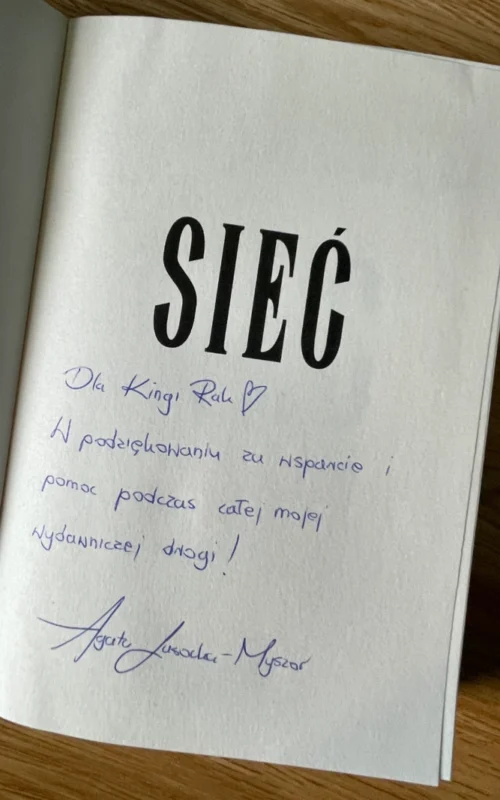 SIEĆ
Dla Kingi Rak
W podziękowaniu za wsparcie i
pomoc podczas całej mojej
wydawniczej drogi!
Agata -Myszor